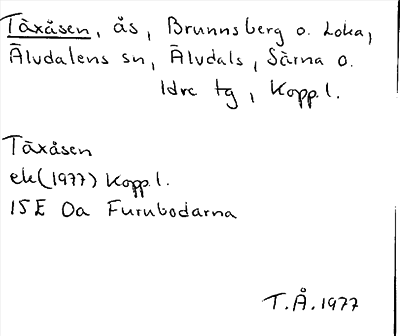 Täxåsen, ås, Brunnsberg o. Loka,
Älvdalens sn, Älvdals, Särna o.
Idre tg, Kopp.l.
Täxåsen
ek(1977) Kopp.l.
15E 0a Furubodarna
T.Å.1977